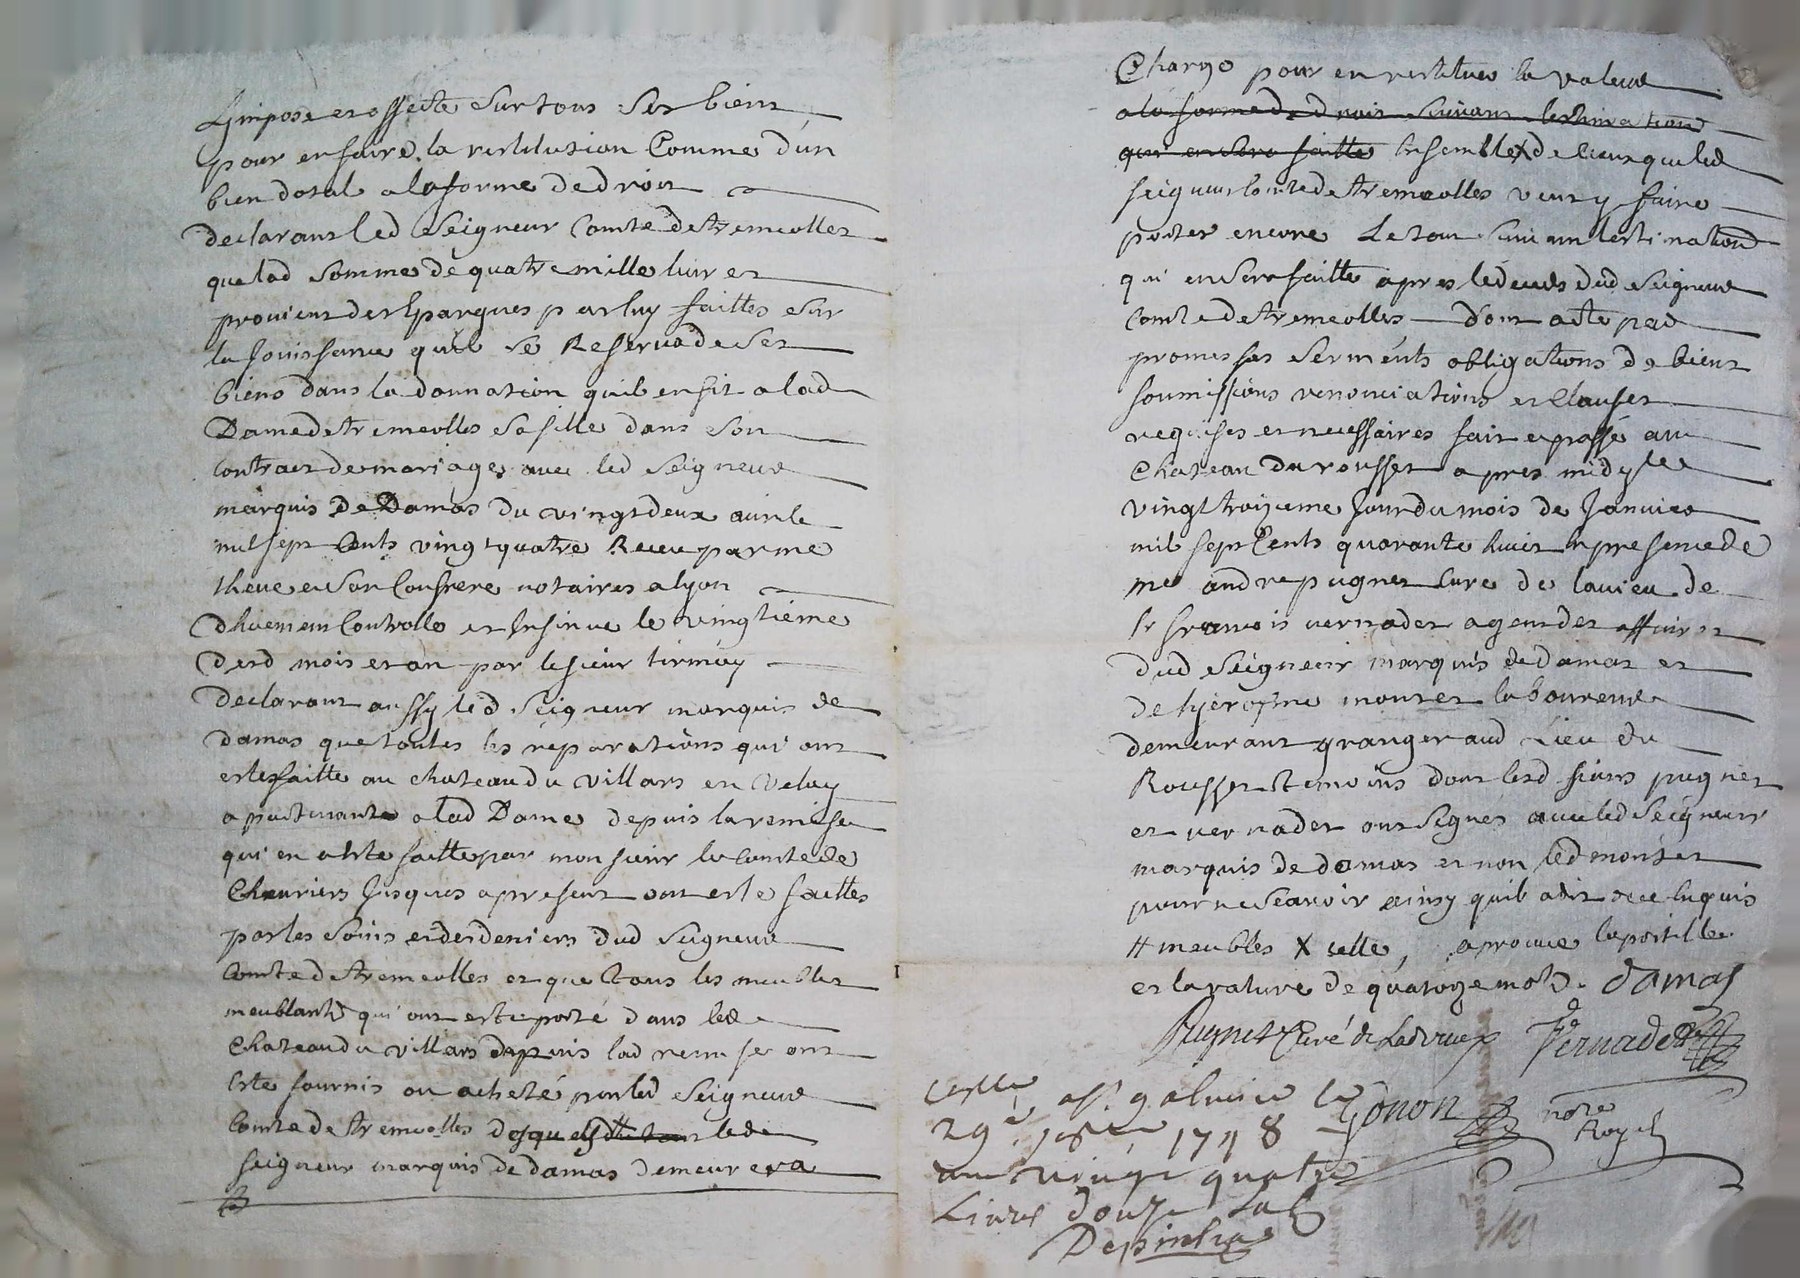 Limpose et affecte sur tous ses biens
pour en faire la restitution Comme d'un
bien dotal a la forme de droit
declarant led Seigneur Comte de tremeolles
que lad somme de quatre mille livres
provient des Epargnes par luy faittes sur
la Jouissance quil se Reserva de ses
biens dans la donnation quil en fit a lad
Dame de tremeolles sa fille dans son
Contract de mariage avec led Seigneur
marquis de Damas du vingt deux avril
mil sept Cents vingt quatre Receu par me
et son Confrere notaires a lyon
Controlle et Insinue le vingtieme
desd mois et an par le sieur
declarant aussy led Seigneur marquis de
damas que toutes les reparations qui ont
estes faitte au chateau du villars en velay
apartenante a lad Dame depuis la remise
qui en a este faitte par monsieur le Comte de
Chevriers Jusques a present ont este faittes
par les soins et des deniers dud Seigneur
Comte de tremeolles et que tous les meubles
meublants qui ont este porté dans led
Chateau du villars depuis lad remise ont
este fournis ou acheté par led Seigneur
Comte de tremeolles desquels led
seigneur marquis de damas demeurera
Chargé pour en restituer la valeur
a la forme de droit suivant lestimation
qui en sera faitte Ensemble X de Ceux que led
seigneur Comte de tremeolles veut y faire
porter encore Le tout suivant lestimation
qui en sera faitte apres le deceds dud Seigneur
Comte de tremeolles Dont acte par
promesses serments obligations de biens
soumissions renonciations et Clauses
requises et necessaires fait et passé au
Chateau du rousset apres midy le
vingt troizieme Jour du mois de Janvier
mil sept Cents quarante huit En presence de
me andre pugnet Cure de lavieu de
sr francois vernadet agent des affaires
dud Seigneur marquis de damas et
de monter laboureur
demeurant granger aud Lieu du
Rousset temoins dont lesd sieurs pugnet
et vernadet ont signés avec led Seigneur
marquis de damas et non led monter
pour ne scavoir ainsy quil a dit de ce Enquis
# meubles X celle, aprouve lapostille
et la rature de quatorze mots. damas
Pugnet Curé de Vernadet
Gonon nore
Royal
a st galmier le
29e 1748
vingt quatre
Livres douze sols